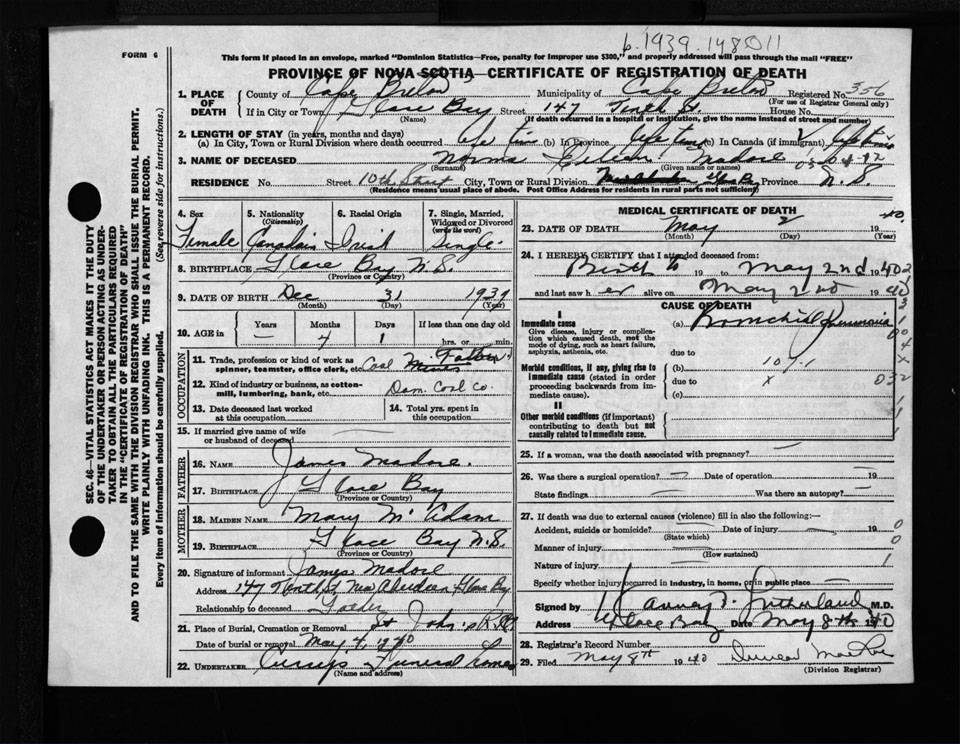 b. 1939. 148011
FORM 6
This form if placed in an envelope, marked "Dominion Statistics—Free, penalty for improper use $300," and properly addressed will pass through the mail "FREE"
PROVINCE OF NOVA SCOTIA—CERTIFICATE OF REGISTRATION OF DEATH
1. PLACE OF DEATH
County of Cape Breton Municipality of Cape Breton Registered No. 356
(For use of Registrar General only)
If in City or Town Glace Bay Street 147 Tenth St. House No.
(Name) (If death occurred in a hospital or institution, give the name instead of street and number)
2. LENGTH OF STAY (in years, months and days)
(a) In City, Town or Rural Division where death occurred life time (b) In Province life time (c) In Canada (if immigrant) life time
3. NAME OF DECEASED Norma Eileen Madore
(Surname) (Given name or names)
RESIDENCE No. Street 10th Street City, Town or Rural Division Glace Bay Province N.S.
(Residence means usual place of abode. Post Office Address for residents in rural parts not sufficient)
4. Sex Female
5. Nationality (Citizenship) Canadain
6. Racial Origin Irish
7. Single, Married, Widowed or Divorced (write the word) Single
8. BIRTHPLACE Glace Bay N.S.
(Province or Country)
9. DATE OF BIRTH Dec 31 1939
(Month) (Day) (Year)
10. AGE in Years Months Days If less than one day old
— 4 1 hrs. or min.
OCCUPATION
11. Trade, profession or kind of work as spinner, teamster, office clerk, etc. Coal Miner Father
12. Kind of industry or business, as cotton-mill, lumbering, bank, etc. Dom. Coal Co.
13. Date deceased last worked at this occupation
14. Total yrs. spent in this occupation
15. If married give name of wife or husband of deceased
FATHER
16. NAME James Madore.
17. BIRTHPLACE Glace Bay
(Province or Country)
MOTHER
18. MAIDEN NAME Mary McAdam
19. BIRTHPLACE Glace Bay N.S.
(Province or Country)
20. Signature of informant James Madore
Address 147 Tenth St New Aberdeen Glace Bay
Relationship to deceased Father
21. Place of Burial, Cremation or Removal St John's
Date of burial or removal May 4, 1940
22. UNDERTAKER Curry's Funeral Home
(Name and address)
MEDICAL CERTIFICATE OF DEATH
23. DATE OF DEATH May 2 40.
(Month) (Day) (Year)
24. I HEREBY CERTIFY that I attended deceased from:
Birth to 19 to May 2nd 1940
and last saw her alive on May 2nd 1940
CAUSE OF DEATH
I
Immediate cause
Give disease, injury or complication which caused death, not the mode of dying, such as heart failure, asphyxia, asthenia, etc.
(a) Bronchial Pneumonia
due to
Morbid conditions, if any, giving rise to immediate cause (stated in order proceeding backwards from immediate cause).
(b) 107.1
due to x
(c)
II
Other morbid conditions (if important) contributing to death but not causally related to immediate cause.
25. If a woman, was the death associated with pregnancy? —
26. Was there a surgical operation? — Date of operation — 19
State findings — Was there an autopsy? —
27. If death was due to external causes (violence) fill in also the following:—
Accident, suicide or homicide? — Date of injury — 19
(State which)
Manner of injury —
(How sustained)
Nature of injury —
Specify whether injury occurred in industry, in home, or in public place —
Signed by Harvey F. Sutherland M.D.
Address Glace Bay Date May 8th 1940
28. Registrar's Record Number
29. Filed May 8th 1940
(Division Registrar)
SEC. 46—VITAL STATISTICS ACT MAKES IT THE DUTY OF THE UNDERTAKER OR PERSON ACTING AS UNDERTAKER TO OBTAIN ALL THE PARTICULARS REQUIRED IN THE "CERTIFICATE OF REGISTRATION OF DEATH" AND TO FILE THE SAME WITH THE DIVISION REGISTRAR WHO SHALL ISSUE THE BURIAL PERMIT.
WRITE PLAINLY WITH UNFADING INK. THIS IS A PERMANENT RECORD.
Every item of information should be carefully supplied. (See reverse side for instructions.)